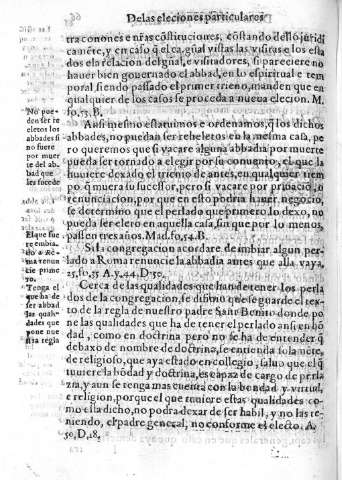 De las eleciones particulares
tra conones e nr̃as cõstituciones, cõstando dello juridi
camẽte, y en caso q̃ el ca. gñal vistas las visitas o los esta
dos e la relacion del gñal, e visitadores, si pareciere no
hauer bien gouernado el abbad, en lo espiritual e tem
poral siendo passado el primer trieno, manden que en
qualquier de los casos se proceda a nueua elecion. M.
fo, 53. B.
Ansi mesmo estatuimos e ordenamos, q̃ los dichos
abbades, no puedan ser reheletos en la mesma casa, pe
ro queremos que si vacare alguna abbadia por muerte
pueda ser tornado a elegir por su conuento, el que la
huuiere dexado el trienio de antes, en qualquier tiem
po. q̃ muera su sucessor, pero si vacare por priuaciõ, o
renunciacion, por que en esto podria hauer negocio,
se determino que el perlado que primero lo dexo, no
pueda ser electo en aquella casa, sin que por lo menos,
passen tres años. Mad. fo, 54. B.
Si la congregacion acordare de imbiar algun per
lado a Roma renuncie la abbadia antes que alla vaya.
55, fo, 55 A. y. 44, D 50.
Cerca de las qualidades que han de tener los perla
dos de la congregacion, se difinio que se guarde el tex-
to de la regla de nuestro padre Sant Benito donde po
ne las qualidades que ha de tener el perlado ansi en bõ
dad, como en doctrina pero no se ha de entender q̃
debaxo de nombre de doctrina, se entienda solamẽte,
de religioso, que aya estado en collegio, saluo que el q̃
tuuiere la bõdad y doctrina, es capaz de cargo de perla
zia, y aun se tenga mas cuenta con la bondad y virtud,
e religion, porque el que tuuiere estas qualidades co-
mo esta dicho, no podra dexar de ser habil, y no las te-
niendo, el padre general, no conforme el electo. A.
50, D, 18,
No pue-
den ser re
eletos los
abbades si
no fuere
por muer
te del ab-
bad que
les sucede
El que fue
re embia-
do a Ro-
ma renun
cie prime
ro.
Tenga el
que ha de
ser abbad
las quali-
dades que
pone nue
stra regla